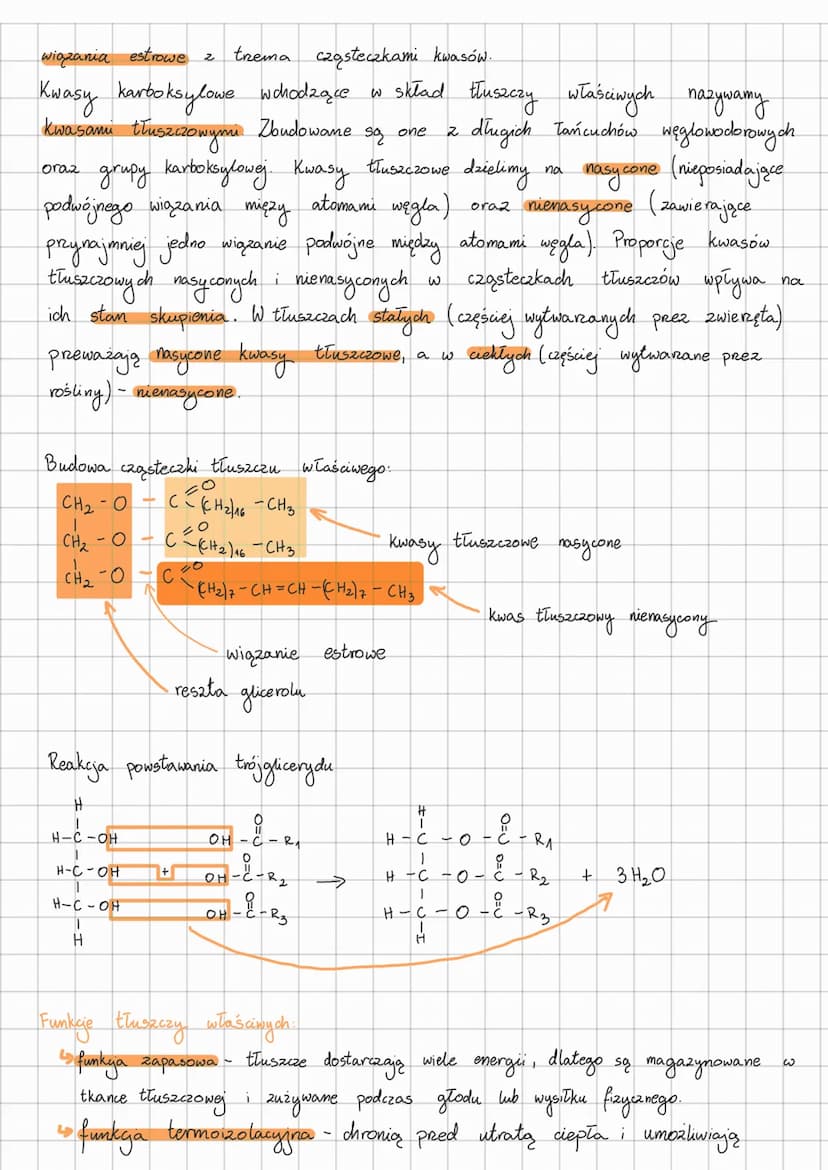 wiązania estrowe z trzema cząsteczkami kwasów.
Kwasy karboksylowe wchodzące w skład tłuszczy właściwych nazywamy
kwasami tłuszczowymi. Zbudowane są one z długich łańcuchów węglowodorowych
oraz grupy karboksylowej. Kwasy tłuszczowe dzielimy na nasycone (nieposiadające
podwójnego wiązania mięzy atomami węgla) oraz nienasycone (zawierające
przynajmniej jedno wiązanie podwójne między atomami węgla). Proporcje kwasów
tłuszczowych nasyconych i nienasyconych w cząsteczkach tłuszczów wpływa na
ich stan skupienia. W tłuszczach stałych (częściej wytwarzanych prez zwierzęta)
preważają nasycone kwasy tłuszczowe, a w ciekłych (częściej wytwarzane prez
rośliny) - nienasycone.
Budowa cząsteczki tłuszczu właściwego:
CH₂ - O - C =O (CH₂)₁₆ - CH₃
CH₂ - O - C =O (CH₂)₁₆ - CH₃
kwasy tłuszczowe nasycone
CH₂ - O - C =O (CH₂)₇ - CH = CH - (CH₂)₇ - CH₃
kwas tłuszczowy nienasycony
wiązanie estrowe
reszta glicerolu
Reakcja powstawania trójglicerydu
H H
O O
H - C - OH OH - C - R₁ H - C - O - C - R₁
O O
H - C - OH + OH - C - R₂ → H - C - O - C - R₂ + 3H₂O
O O
H - C - OH OH - C - R₃ H - C - O - C - R₃
H H
Funkcje tłuszczy właściwych:
↳ funkcja zapasowa - tłuszcze dostarczają wiele energii, dlatego są magazynowane w
tkance tłuszczowej i zużywane podczas głodu lub wysiłku fizycznego.
↳ funkcja termoizolacyjna - chronią pred utratą ciepła i umożliwiają